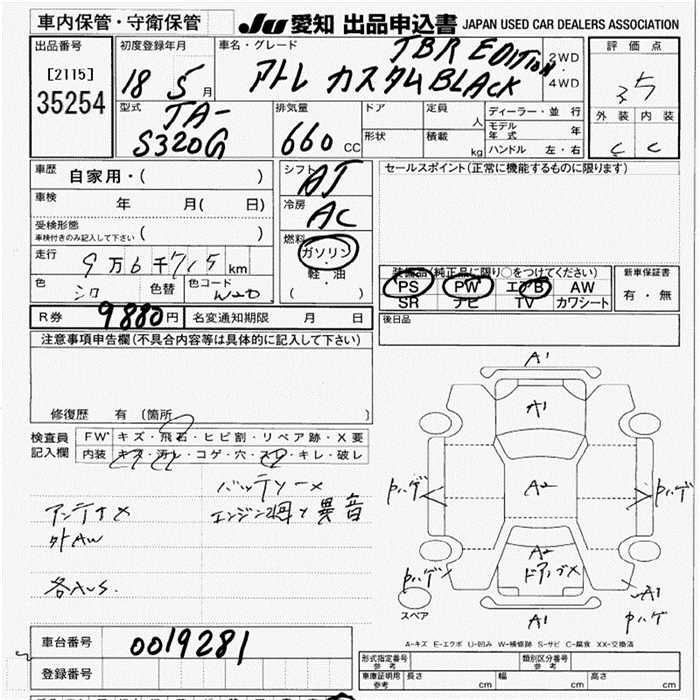 車内保管・守衛保管
JU 愛知 出品申込書 JAPAN USED CAR DEALERS ASSOCIATION
出品番号
[2115]
35254
初度登録年月
18 5 月
車名・グレード
アトレ カスタム TBR EDITION BLACK
2WD
・
4WD
評価点
3.5
外装 内装
C C
型式
TA-
S320G
排気量
660 CC
ドア
定員 人
形状
積載 kg
ディーラー・並行
モデル年式 年
ハンドル 左・右
車歴 自家用・( )
車検 年 月( 日)
受検形態
車検付きのみ記入して下さい ( )
走行 9万6千715 km
色 シロ 色替 色コード W20
シフト AT
冷房 AC
燃料
ガソリン
・
軽・油
( )
セールスポイント(正常に機能するものに限ります)
装備品(純正品に限り○をつけてください)
PS PW エアB AW
SR ナビ TV カワシート
新車保証書
有・無
R券 9880円 名変通知期限 月 日
後日品
注意事項申告欄(不具合内容等は具体的に記入して下さい)
修復歴 有(箇所 )
検査員
記入欄
FW キズ・飛石・ヒビ割・リペア跡・X要
内装 キズ・汚レ・コゲ・穴・スレ・キレ・破レ
バッテリー×
アンテナ× エンジン廻り異音
外AW
各AUS.
A1
A1
A2
A2
ドアップ×
A1
A1
スペア
A-キズ E-エクボ U-凹み W-補修跡 S-サビ C-腐食 XX-交換済
車台番号 0019281
登録番号
形式指定番号
参考
類別区分番号
参考
車庫証明用
参考
長さ cm 幅 cm 高さ cm